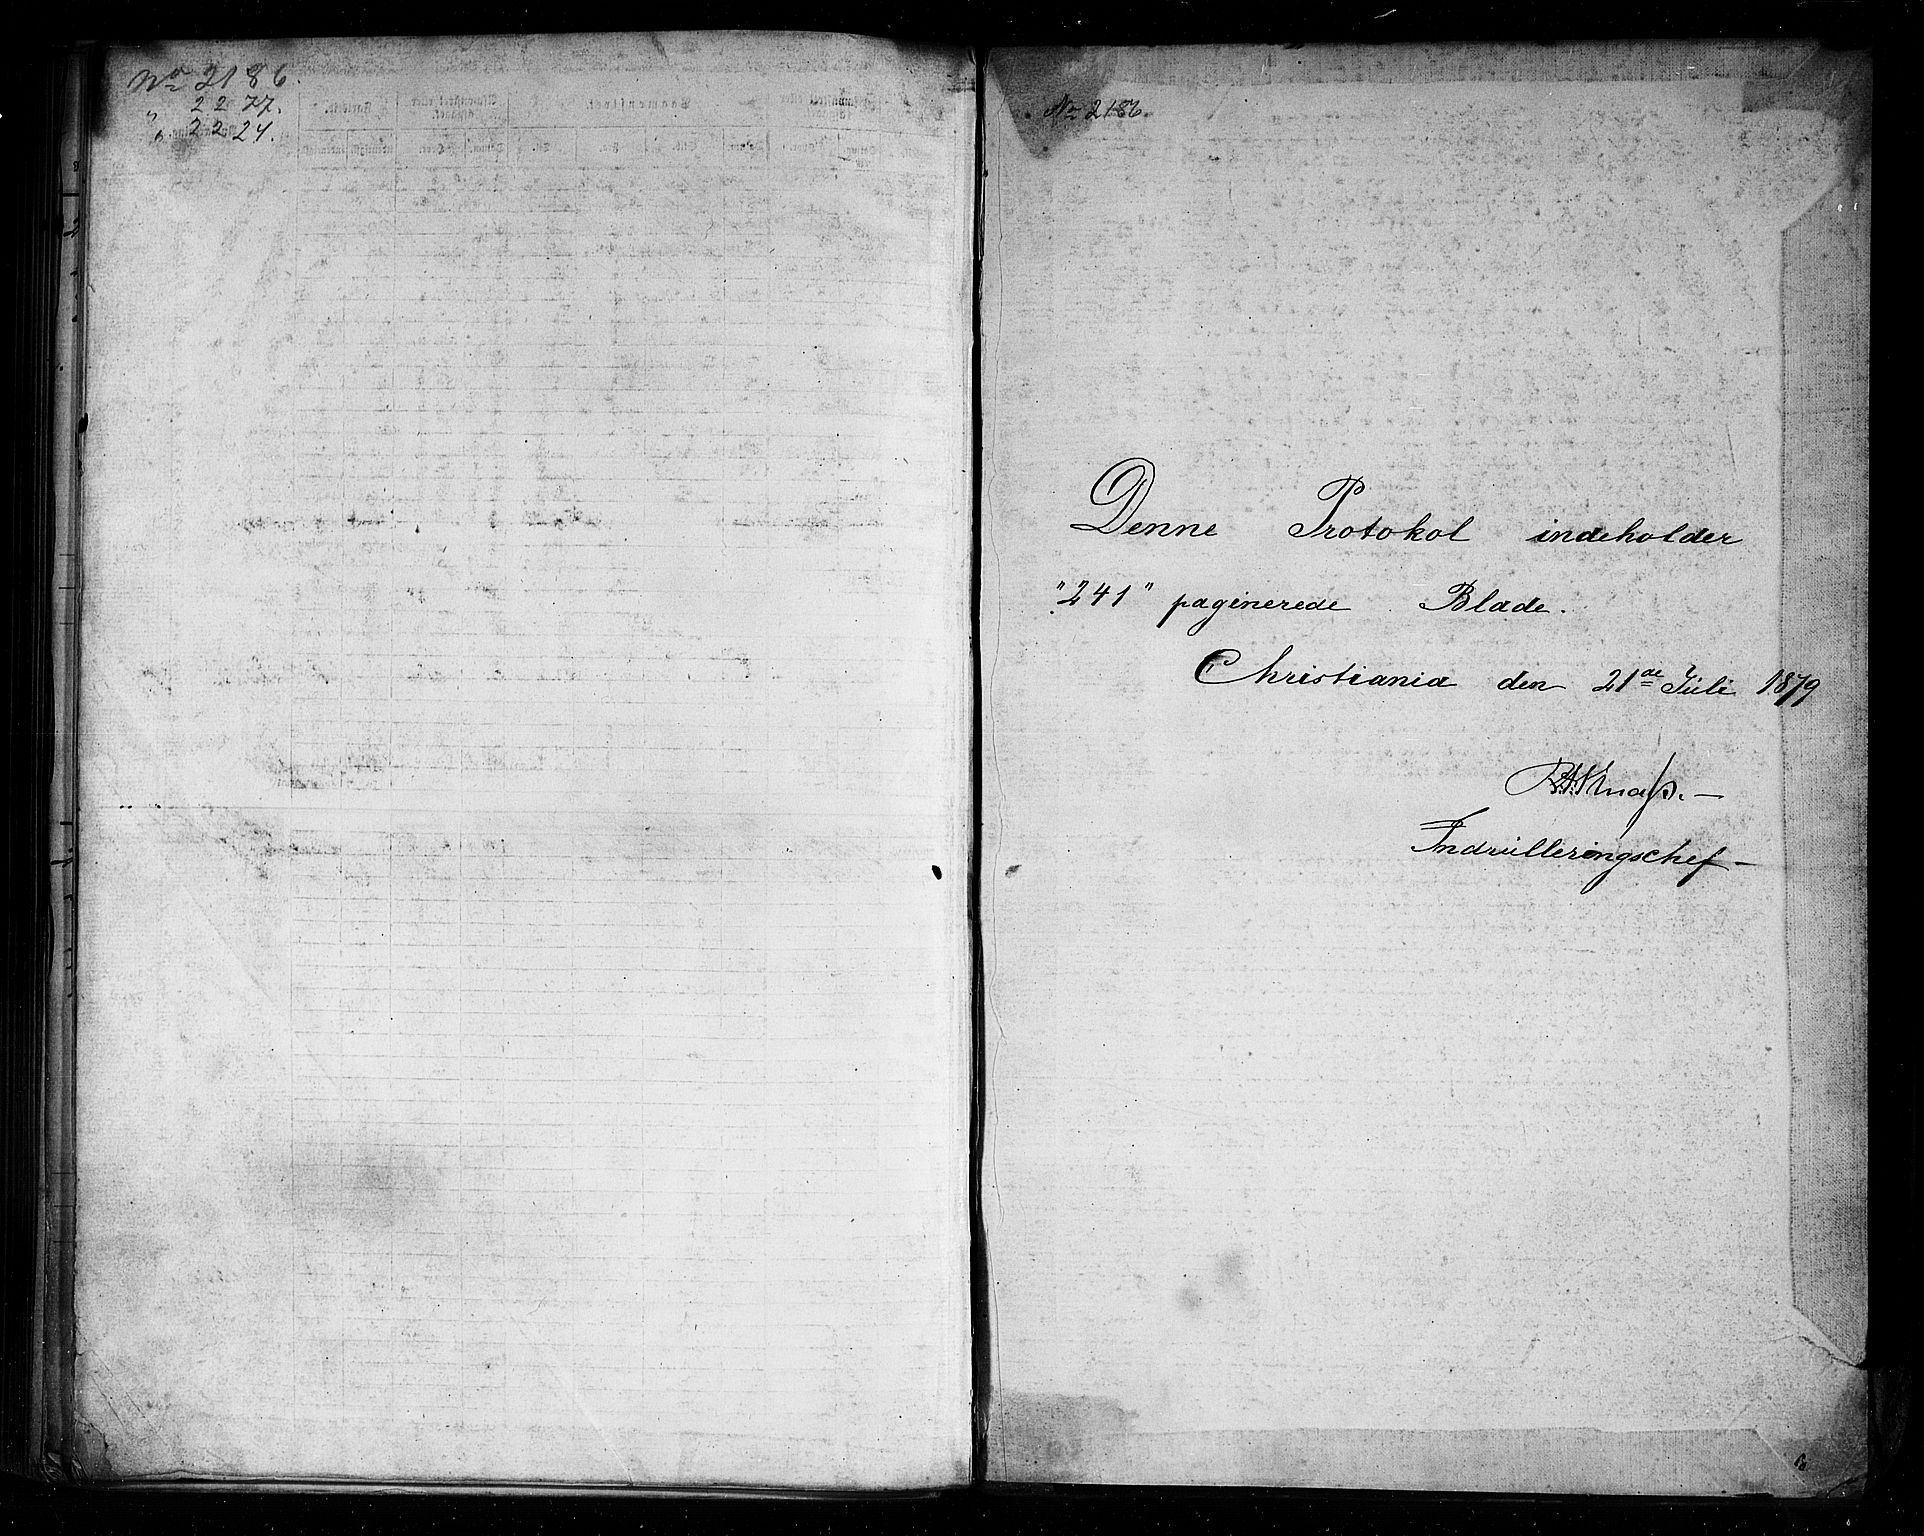 No 2186.
" 2277.
" 2224.
No 2186.
Denne Protokol indeholder
"241" paginerede Blade.
Christiania den 21de Juli 1879
Indrulleringschef